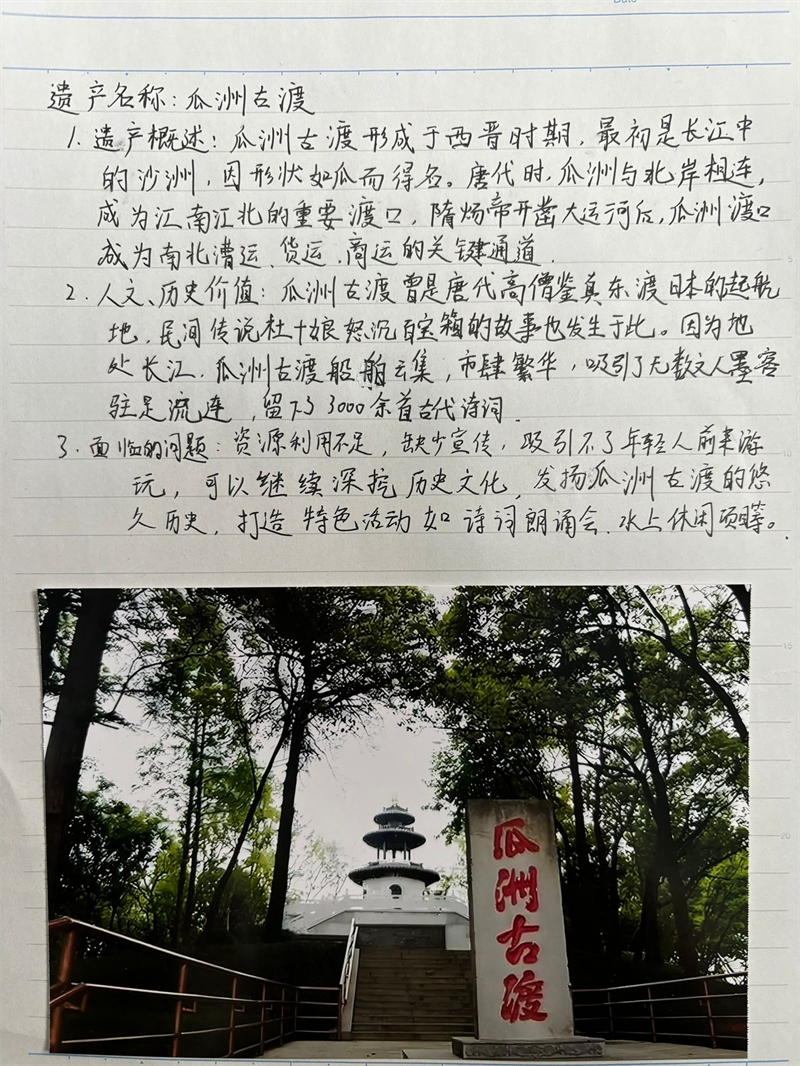 Date
遗产名称：瓜洲古渡
1. 遗产概述：瓜洲古渡形成于西晋时期，最初是长江中
的沙洲，因形状如瓜而得名。唐代时，瓜洲与北岸相连，
成为江南江北的重要渡口，隋炀帝开凿大运河后，瓜洲渡口
成为南北漕运、货运、商运的关键通道.
2. 人文、历史价值：瓜洲古渡曾是唐代高僧鉴真东渡日本的起航
地，民间传说杜十娘怒沉百宝箱的故事也发生于此。因为地
处长江，瓜洲古渡船舶云集，市肆繁华，吸引了无数文人墨客
驻足流连，留下了3000余首古代诗词.
3. 面临的问题：资源利用不足，缺少宣传，吸引不了年轻人前来游
玩，可以继续深挖历史文化，发扬瓜洲古渡的悠
久历史，打造特色活动如诗词朗诵会、水上休闲项目等。
5
10
15
20
瓜洲古渡